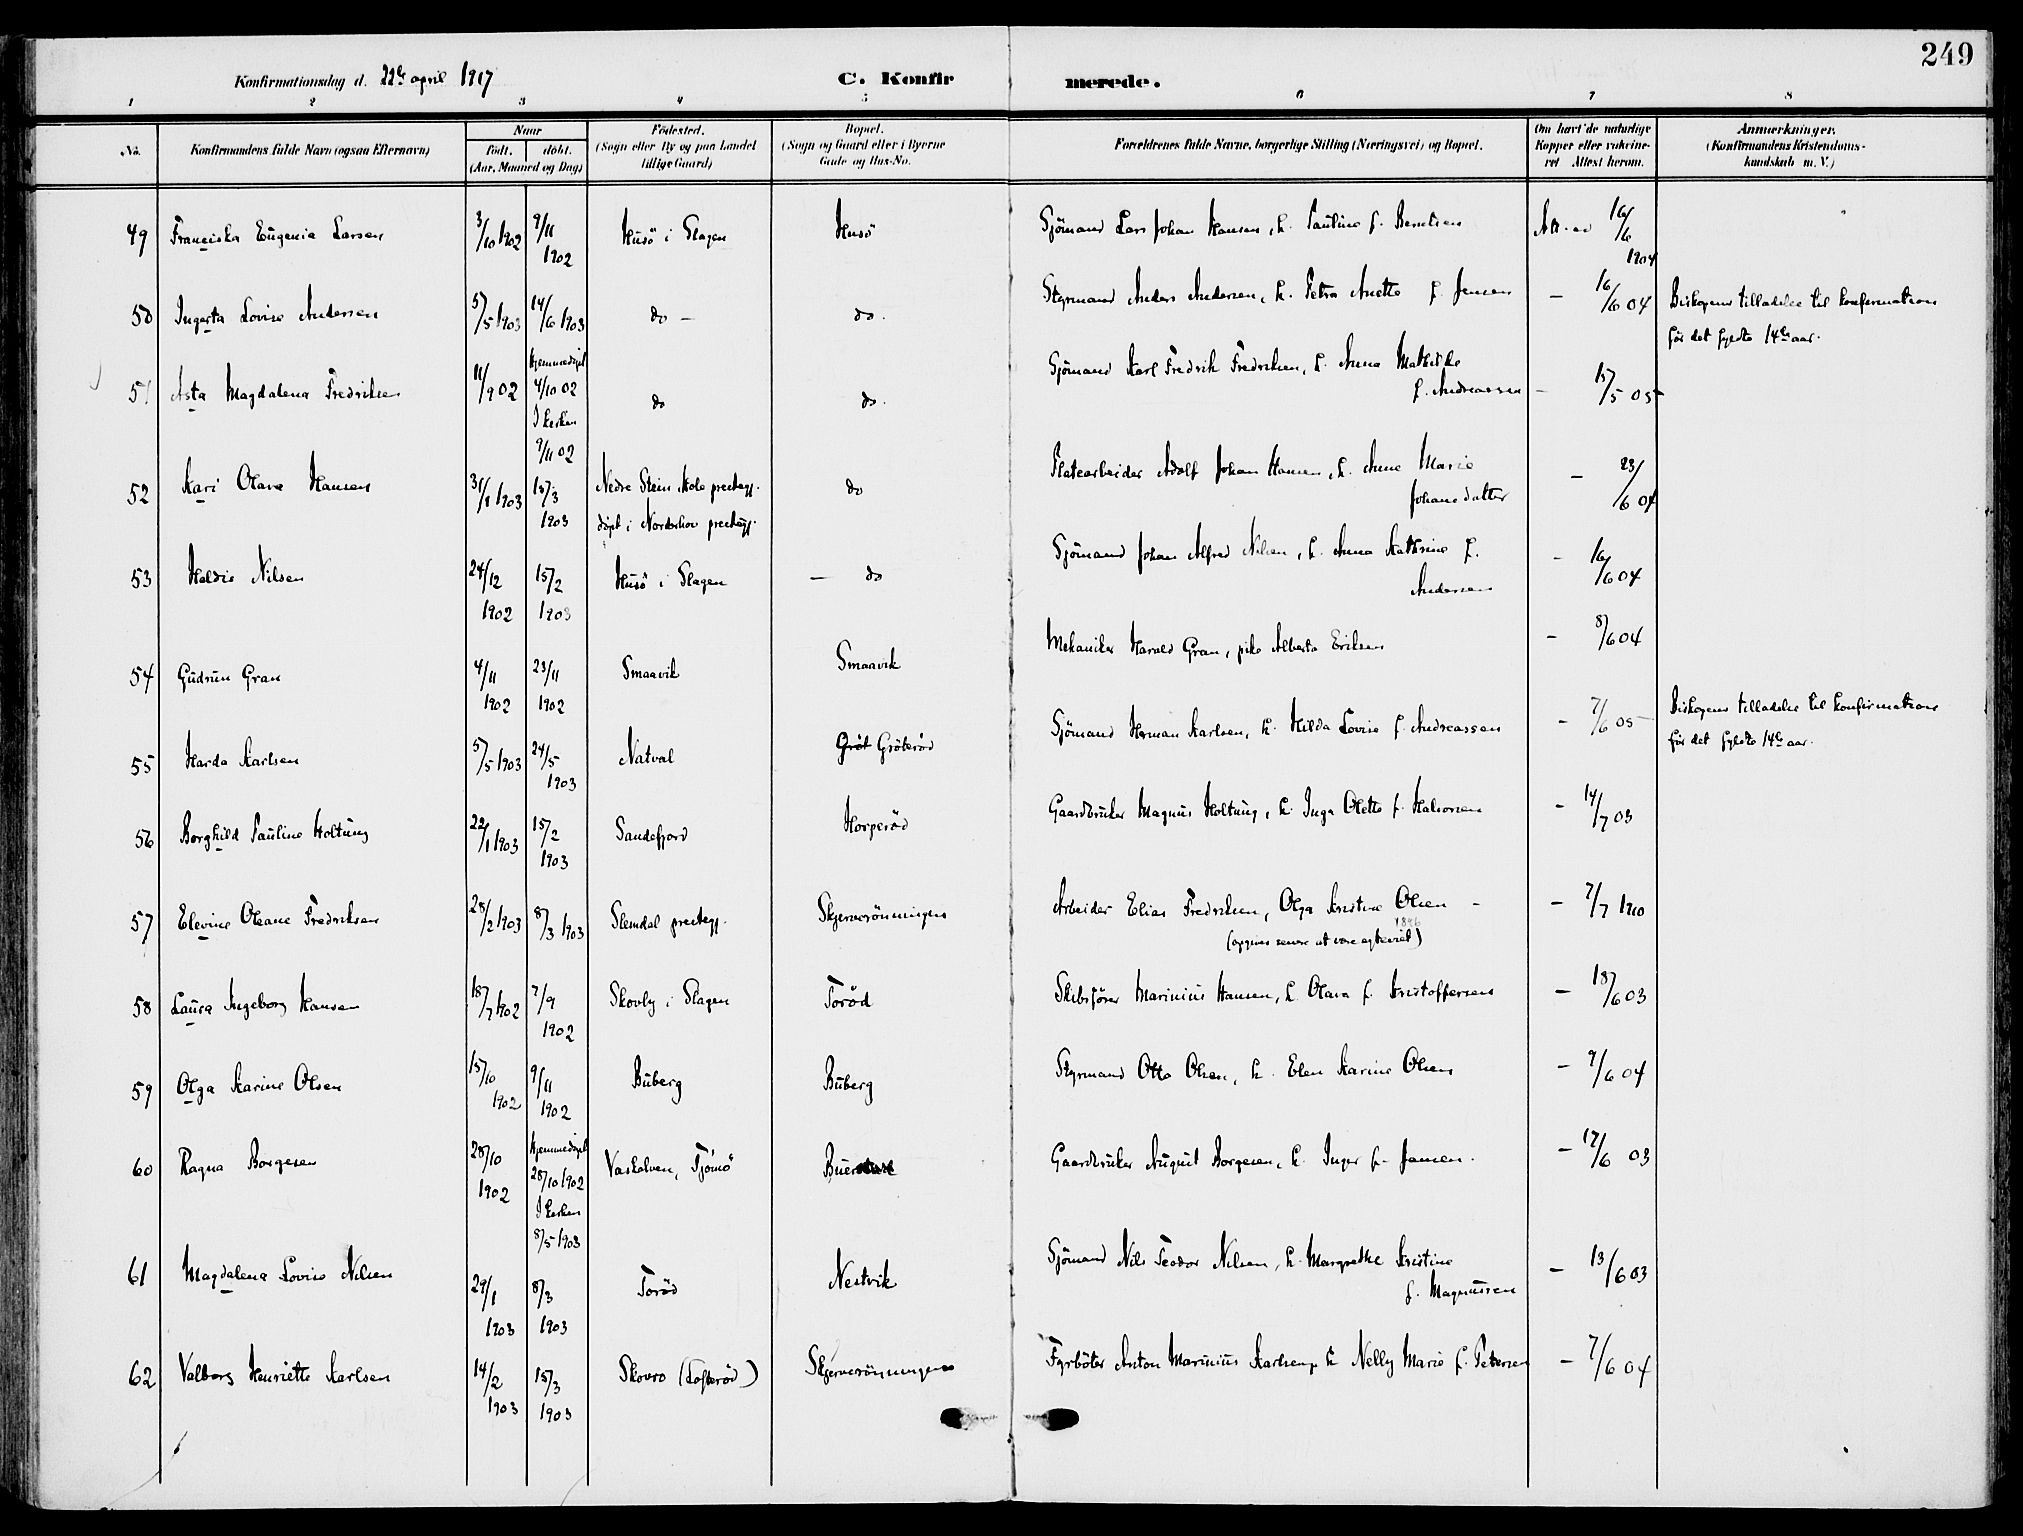 249
Konfirmationsdag d. 22de april 1917 C. Konfirmerede.
1 2 3 4 5 6 7 8
No. Konfirmandens fulde Navn (ogsaa Efternavn) Naar født. døbt. (Aar, Maaned og Dag) Fødested. (Sogn eller By og paa Landet tillige Gaard) Bopæl. (Sogn og Gaard eller i Byerne Gade og Hus-No. Forældrenes fulde Navne, borgerlige Stilling (Næringsvei) og Bopæl. Om havt de naturlige Kopper eller vakcineret Attest herom. Anmærkninger. (Konfirmandens Kristendomskundskab m. V.)
49 Franciska Eugenia Larsen 3/10 1902 9/11 1902 Husö i Slagen Husö Sjömand Lars Johan Hansen, h. Pauline f. Berntsen Att. av 16/6 1904
50 Ingerta Lovise Andersen 5/5 1903 14/6 1903 do - do. Styrmand Anders Andersen, h. Petra Anette f. Jensen - 16/6 04 Biskopens tilladelse til konfirmation
för det fyldte 14de aar.
51 Asta Magdalena Fredriksen 11/9 02 Hjemmedöpt 4/10 02 I kirken 9/11 02 do do. Sjömand Karl Fredrik Fredriksen, h. Anna Mathilde
f. Andreassen - 15/5 05
52 Kari Olava Hansen 31/1 1903 15/3 1903 Nedre Stein, Hole prestegj. do Platearbeider Adolf Johan Hansen, h. Anne Marie - 23/6 04
döpt i Norderhov prestegj. Johansdatter
53 Haldis Nilsen 24/12 1902 15/2 1903 Husö i Slagen - do Sjömand Johan Alfred Nilsen, h. Anna Kathrine f. - 16/6 04
Andersen
54 Gudrun Gran 4/11 1902 23/11 1902 Smaavik Smaavik Mekaniker Harald Gran, pike Alberta Eriksen - 8/6 04
55 Harda Karlsen 5/5 1903 24/5 1903 Natval Gröt Gröteröd Sjömand Herman Karlsen, h. Hilda Lovise f. Andreassen - 7/6 05 Biskopens tilladelse til konfirmation
för det fyldte 14de aar.
56 Borghild Pauline Holtung 22/1 1903 15/2 1903 Sandefjord Horperöd Gaardbruker Magnus Holtung, h. Inga Olette f. Halvorsen - 14/7 03
57 Elevine Oleane Fredriksen 28/2 1903 8/3 1903 Slemdal prestegj. Skjerverönningen Arbeider Elias Fredriksen, Olga Kristine Olsen - - 7/7 1910
(opgives senere at være egteviet)
58 Laura Ingeborg Hansen 18/7 1902 7/9 1902 Skovly i Slagen Toröd Skibsförer Marinius Hansen, h. Olava f. Kristoffersen - 18/6 03
59 Olga Karine Olsen 15/10 1902 9/11 1902 Buberg Buberg Styrmand Otto Olsen, h. Elen Karine Olsen - 9/6 04
60 Ragna Borgesen 28/10 1902 Hjemmedöpt 28/10 1902 I kirken 8/5 1903 Vaskalven, Tjömö Gaardbruker August Borgesen, h. Inger f. Jansen. - 17/6 03
61 Magdalena Lovise Nilsen 29/1 1903 8/3 1903 Toröd Nestvik Sjömand Nils Teodor Nilsen, h. Margrethe Kristine
f. Magnussen - 13/6 03
62 Valborg Henriette Karlsen 14/2 1903 15/3 1903 Skovro (Lofteröd) Skjerverönningen Fyrböter Anton Marinius Karlsen, h. Nelly Marie f. Petersen - 7/6 04